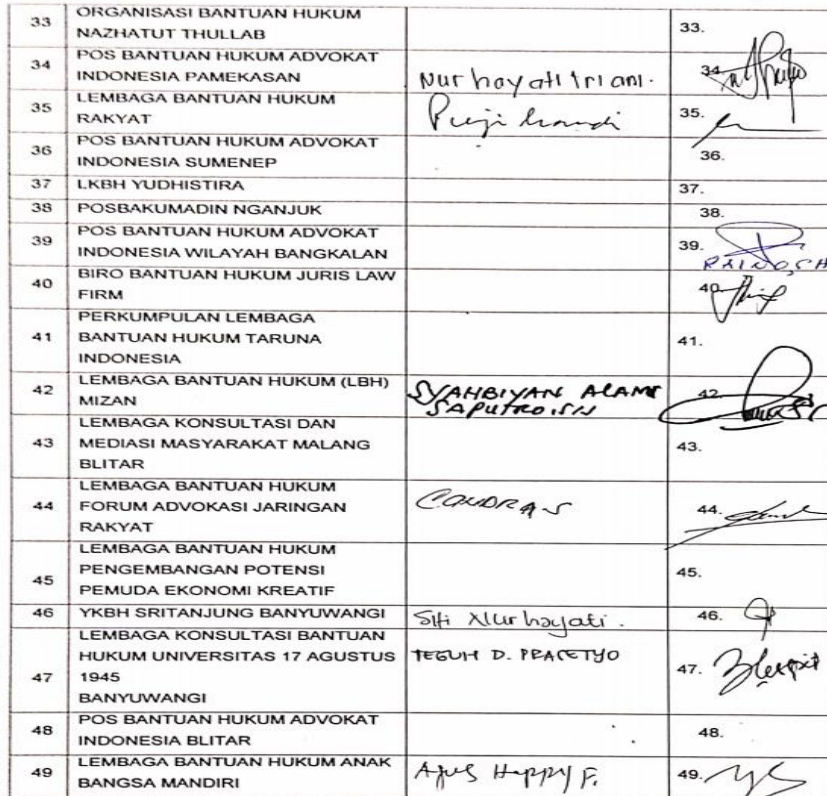 33 ORGANISASI BANTUAN HUKUM 33.
NAZHATUT THULLAB
34 POS BANTUAN HUKUM ADVOKAT 34.
INDONESIA PAMEKASAN Nurhayati triani.
35 LEMBAGA BANTUAN HUKUM 35.
RAKYAT
36 POS BANTUAN HUKUM ADVOKAT 36.
INDONESIA SUMENEP
37 LKBH YUDHISTIRA 37.
38 POSBAKUMADIN NGANJUK 38.
39 POS BANTUAN HUKUM ADVOKAT 39.
INDONESIA WILAYAH BANGKALAN
40 BIRO BANTUAN HUKUM JURIS LAW 40
FIRM
PERKUMPULAN LEMBAGA
41 BANTUAN HUKUM TARUNA 41.
INDONESIA
42 LEMBAGA BANTUAN HUKUM (LBH) SYAHBIYAN ALAMS 42.
MIZAN SAPUTRO.SH
LEMBAGA KONSULTASI DAN
43 MEDIASI MASYARAKAT MALANG 43.
BLITAR
LEMBAGA BANTUAN HUKUM
44 FORUM ADVOKASI JARINGAN CANDRA S 44.
RAKYAT
LEMBAGA BANTUAN HUKUM
45 PENGEMBANGAN POTENSI 45.
PEMUDA EKONOMI KREATIF
46 YKBH SRITANJUNG BANYUWANGI Siti Nurhayati. 46.
LEMBAGA KONSULTASI BANTUAN
HUKUM UNIVERSITAS 17 AGUSTUS TEGUH D. PRASETYO
47 1945 47.
BANYUWANGI
48 POS BANTUAN HUKUM ADVOKAT 48.
INDONESIA BLITAR
49 LEMBAGA BANTUAN HUKUM ANAK 49.
BANGSA MANDIRI Agus Happy F.